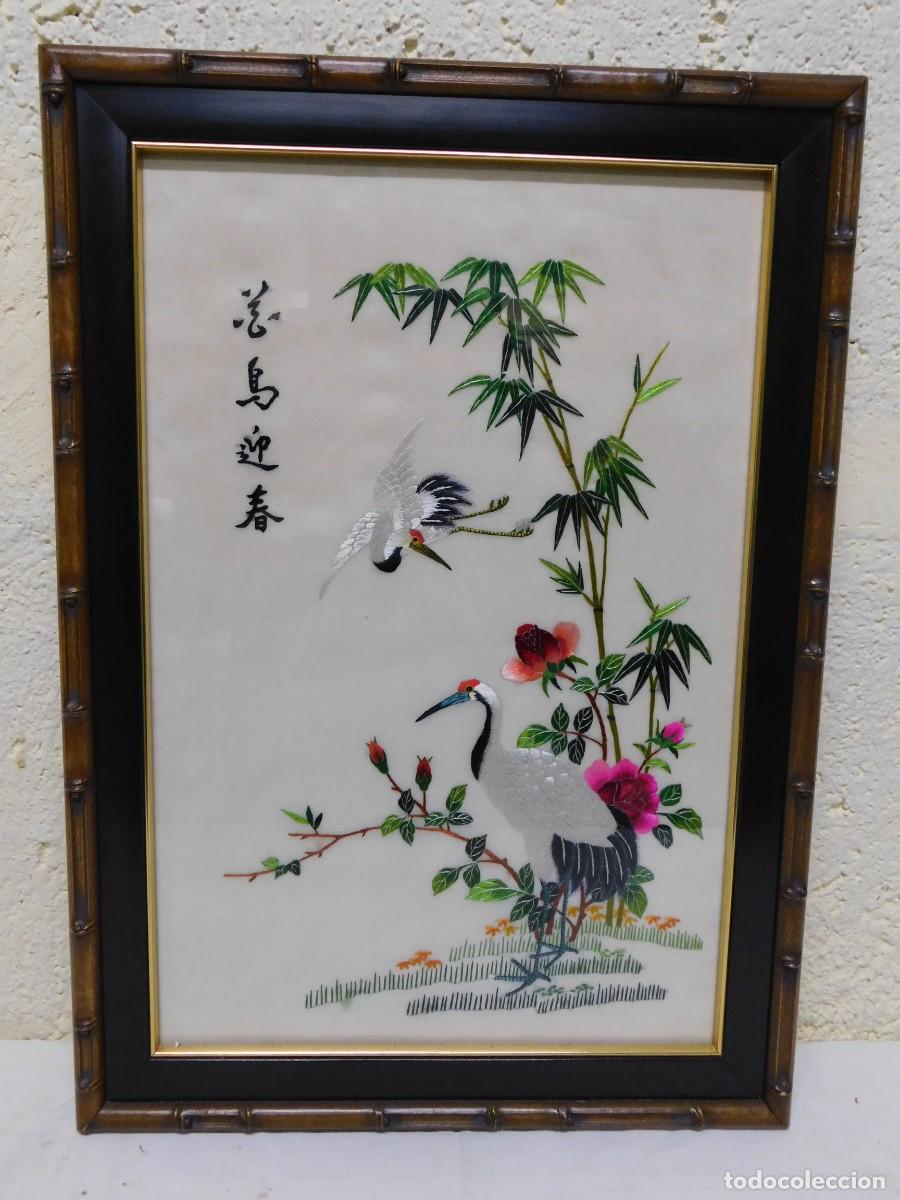 花鳥迎春
todocoleccion